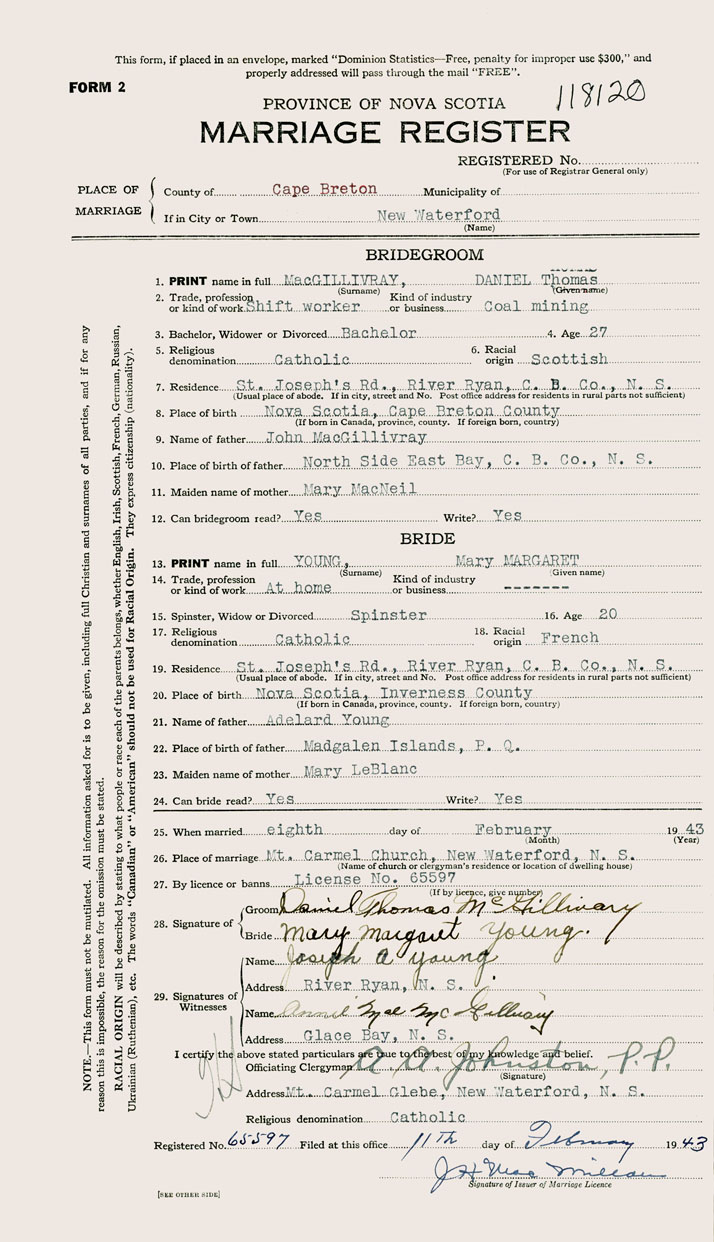 This form, if placed in an envelope, marked "Dominion Statistics—Free, penalty for improper use $300," and
properly addressed will pass through the mail "FREE".
FORM 2
118120
PROVINCE OF NOVA SCOTIA
MARRIAGE REGISTER
REGISTERED No.
(For use of Registrar General only)
PLACE OF MARRIAGE
County of Cape Breton Municipality of
If in City or Town New Waterford
(Name)
BRIDEGROOM
1. PRINT name in full MacGILLIVRAY, DANIEL Thomas
(Surname) (Given name)
2. Trade, profession or kind of work Shift worker Kind of industry or business Coal mining
3. Bachelor, Widower or Divorced Bachelor 4. Age 27
5. Religious denomination Catholic 6. Racial origin Scottish
7. Residence St. Joseph's Rd., River Ryan, C. B. Co., N. S.
(Usual place of abode. If in city, street and No. Post office address for residents in rural parts not sufficient)
8. Place of birth Nova Scotia, Cape Breton County
(If born in Canada, province, county. If foreign born, country)
9. Name of father John MacGillivray
10. Place of birth of father North Side East Bay, C. B. Co., N. S.
11. Maiden name of mother Mary MacNeil
12. Can bridegroom read? Yes Write? Yes
BRIDE
13. PRINT name in full YOUNG, Mary MARGARET
(Surname) (Given name)
14. Trade, profession or kind of work At home Kind of industry or business -------
15. Spinster, Widow or Divorced Spinster 16. Age 20
17. Religious denomination Catholic 18. Racial origin French
19. Residence St. Joseph's Rd., River Ryan, C. B. Co., N. S.
(Usual place of abode. If in city, street and No. Post office address for residents in rural parts not sufficient)
20. Place of birth Nova Scotia, Inverness County
(If born in Canada, province, county. If foreign born, country)
21. Name of father Adelard Young
22. Place of birth of father Madgalen Islands, P. Q.
23. Maiden name of mother Mary LeBlanc
24. Can bride read? Yes Write? Yes
25. When married eighth day of February 1943
(Month) (Year)
26. Place of marriage Mt. Carmel Church, New Waterford, N. S.
(Name of church or clergyman's residence or location of dwelling house)
27. By licence or banns License No. 65597
(If by licence, give number)
28. Signature of
Groom Daniel Thomas McGillivary
Bride Mary Margaret Young.
29. Signatures of Witnesses
Name Joseph A Young
Address River Ryan, N. S.
Name Annie Mae McGillivary
Address Glace Bay, N. S.
I certify the above stated particulars are true to the best of my knowledge and belief.
Officiating Clergyman A. A. Johnston, P.P.
(Signature)
Address Mt. Carmel Glebe, New Waterford, N. S.
Religious denomination Catholic
Registered No. 65597 Filed at this office 11th day of February 1943
J H MacMillan
Signature of Issuer of Marriage Licence
[SEE OTHER SIDE]
NOTE.—This form must not be mutilated. All information asked for is to be given, including full Christian and surnames of all parties, and if for any
reason this is impossible, the reason for the omission must be stated.
RACIAL ORIGIN will be described by stating to what people or race each of the parents belongs, whether English, Irish, Scottish, French, German, Russian,
Ukrainian (Ruthenian), etc. The words "Canadian" or "American" should not be used for Racial Origin. They express citizenship (nationality).